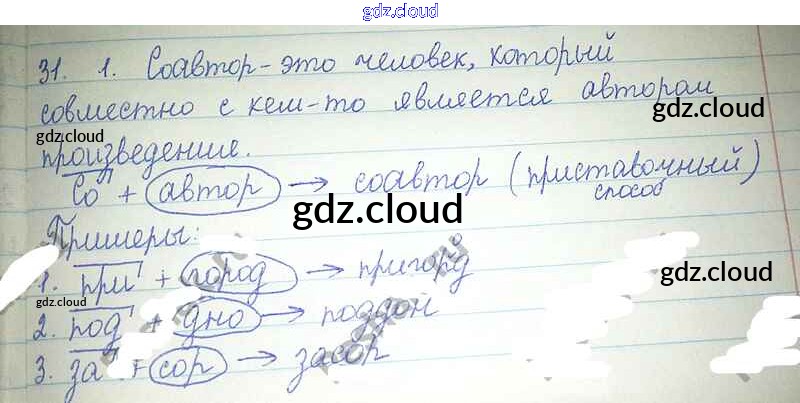 gdz.cloud
31. 1. Соавтор - это человек, который
совместно с кем-то является автором
gdz.cloud
gdz.cloud
произведения.
Со + автор → соавтор (приставочный)
способ
gdz.cloud
Примеры:
1. при + город → пригорд
gdz.cloud
gdz.cloud
2. под + дно → поддон
3. за + сор → засор
gdz.cloud